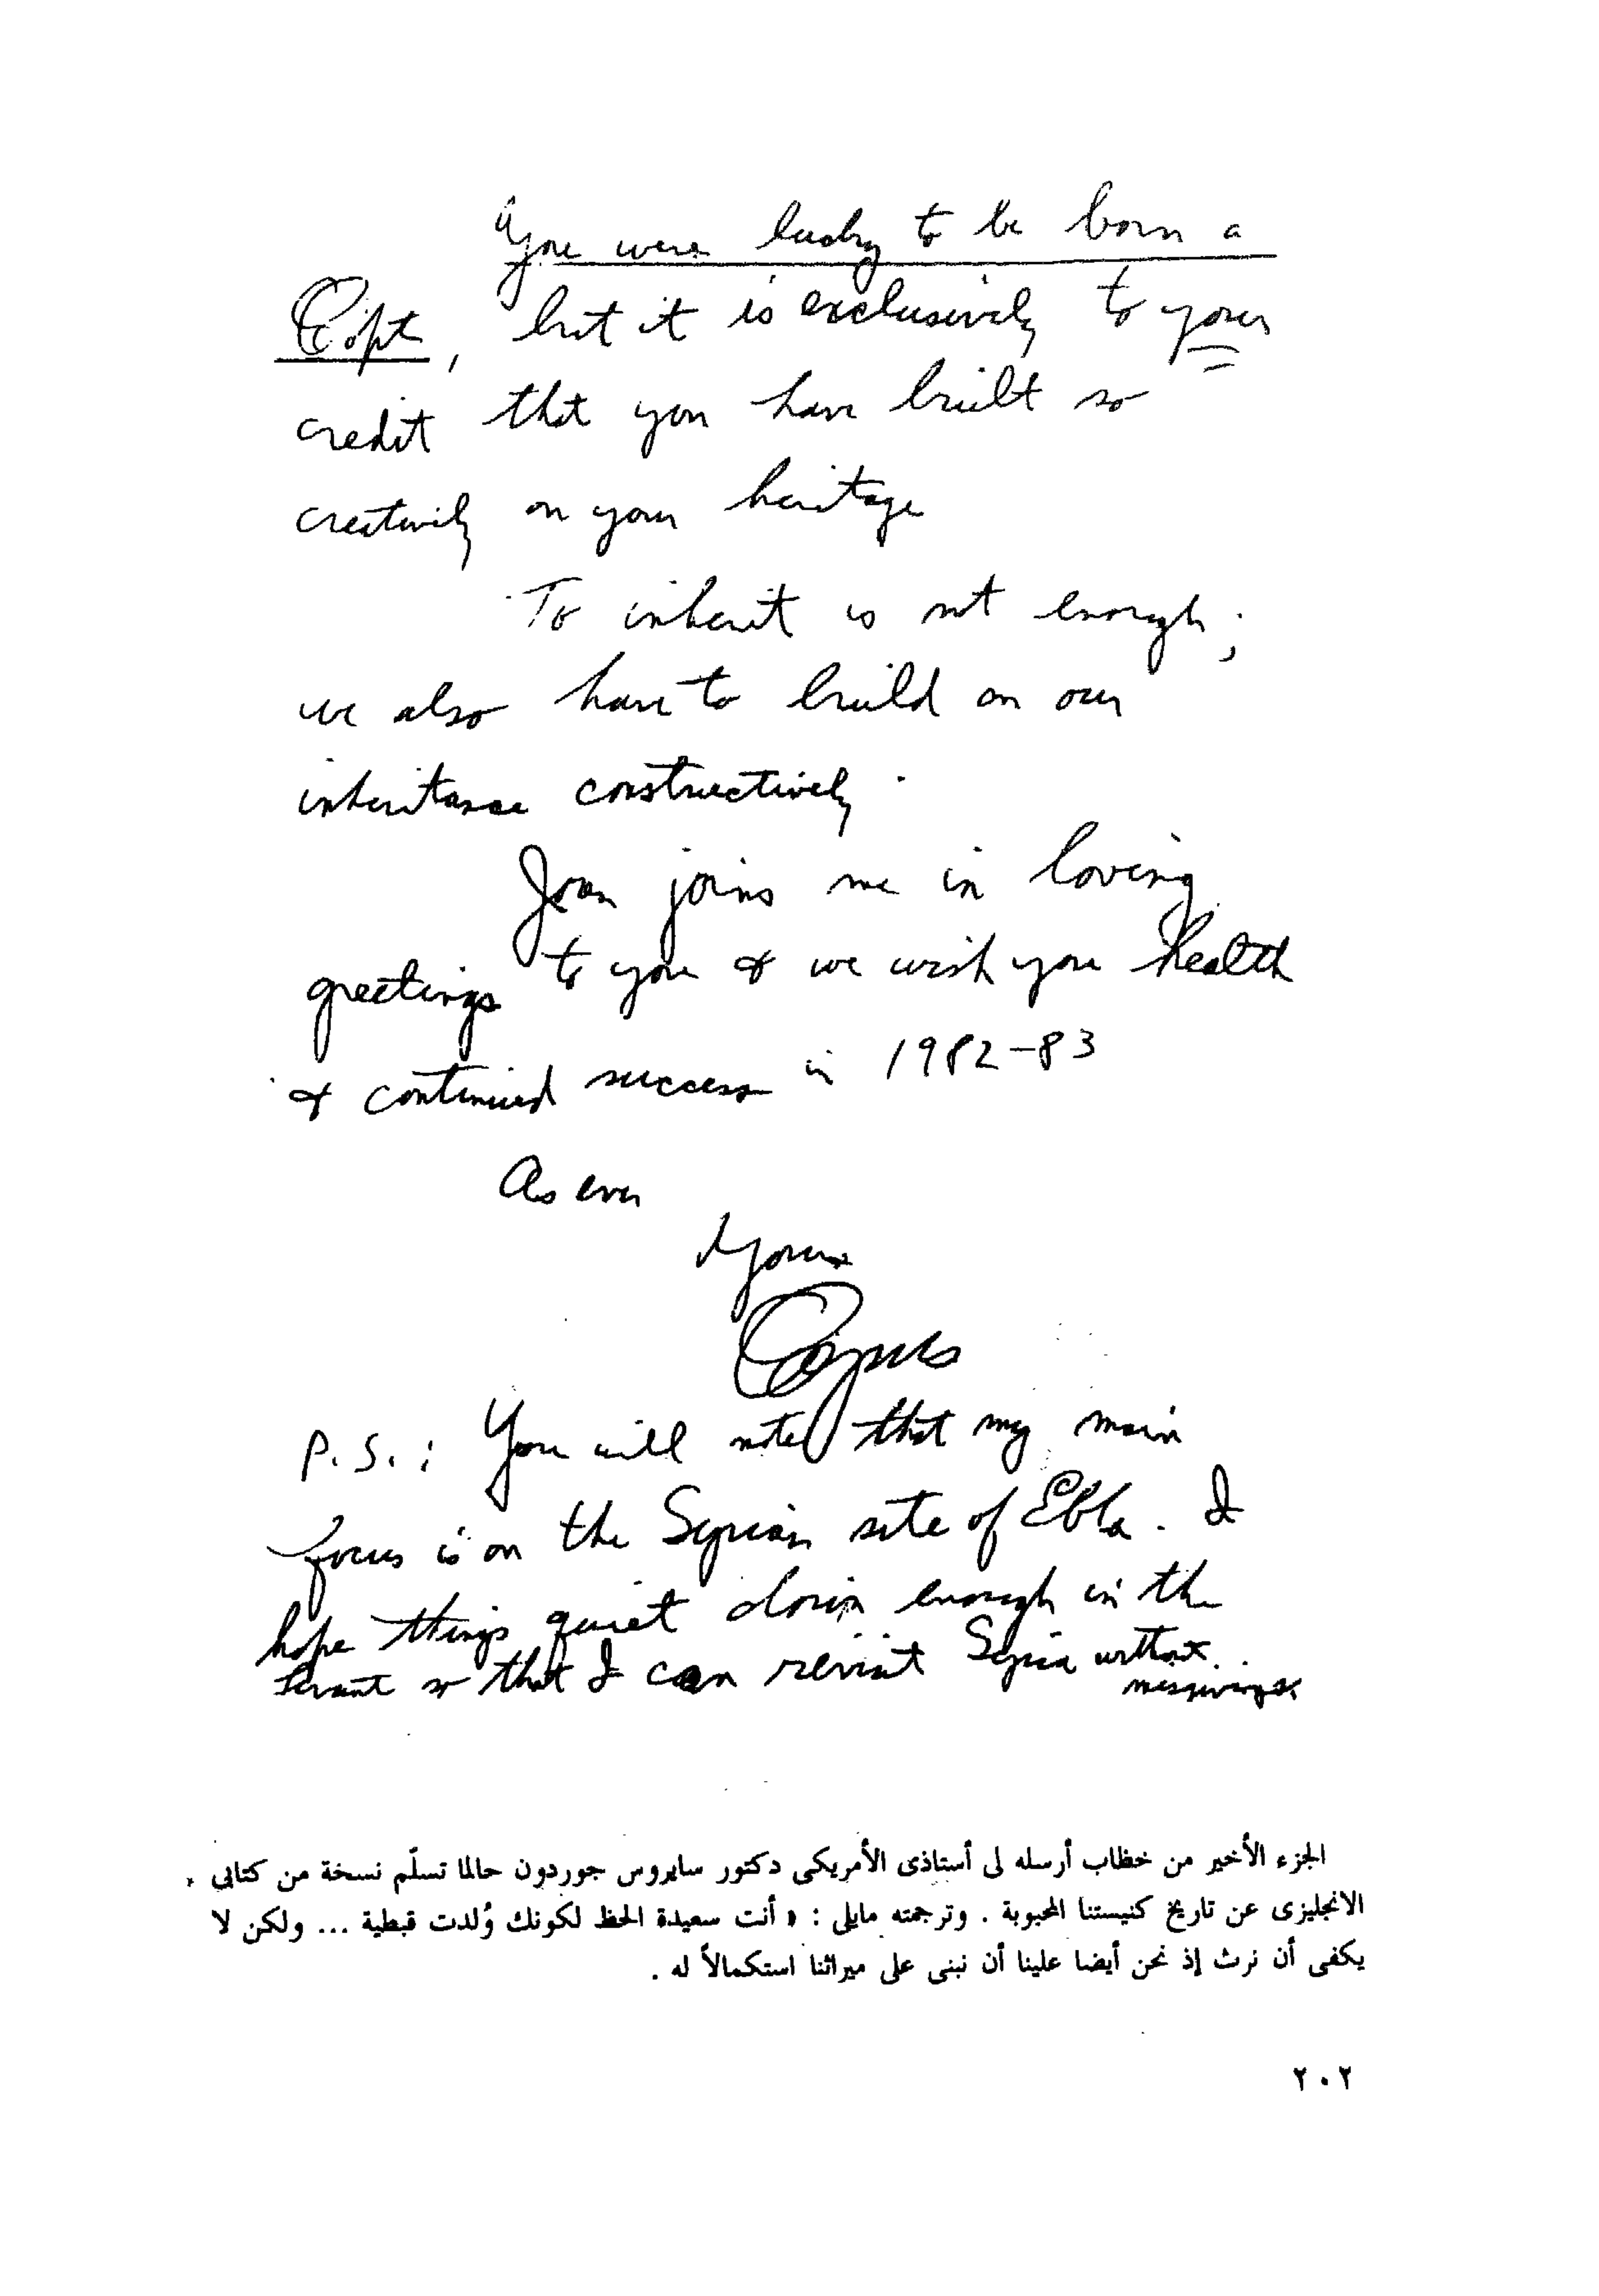 "You were lucky to be born a
Copt, but it is exclusively to your
credit that you have built so
creatively on your heritage
To inherit is not enough;
we also have to build on our
inheritance constructively.
Joan joins me in loving
greetings to you & we wish you health
& continued success in 1982-83
As ever
Yours
Cyrus
P.S.: You will note that my main
focus is on the Syrian site of Ebla. I
hope things quiet down enough in the
Levant so that I can revisit Syria without
misgivings
الجزء الأخير من خطاب أرسله لى أستاذى الأمريكى دكتور سايروس جوردون حالما تسلّم نسخة من كتابى
الانجليزى عن تاريخ كنيستنا المحبوبة . وترجمته مايلى : « أنت سعيدة الحظ لكونك وُلدت قبطية ... ولكن لا
يكفى أن نرث إذ نحن أيضا علينا أن نبنى على ميراثنا استكمالاً له .
٢٠٢